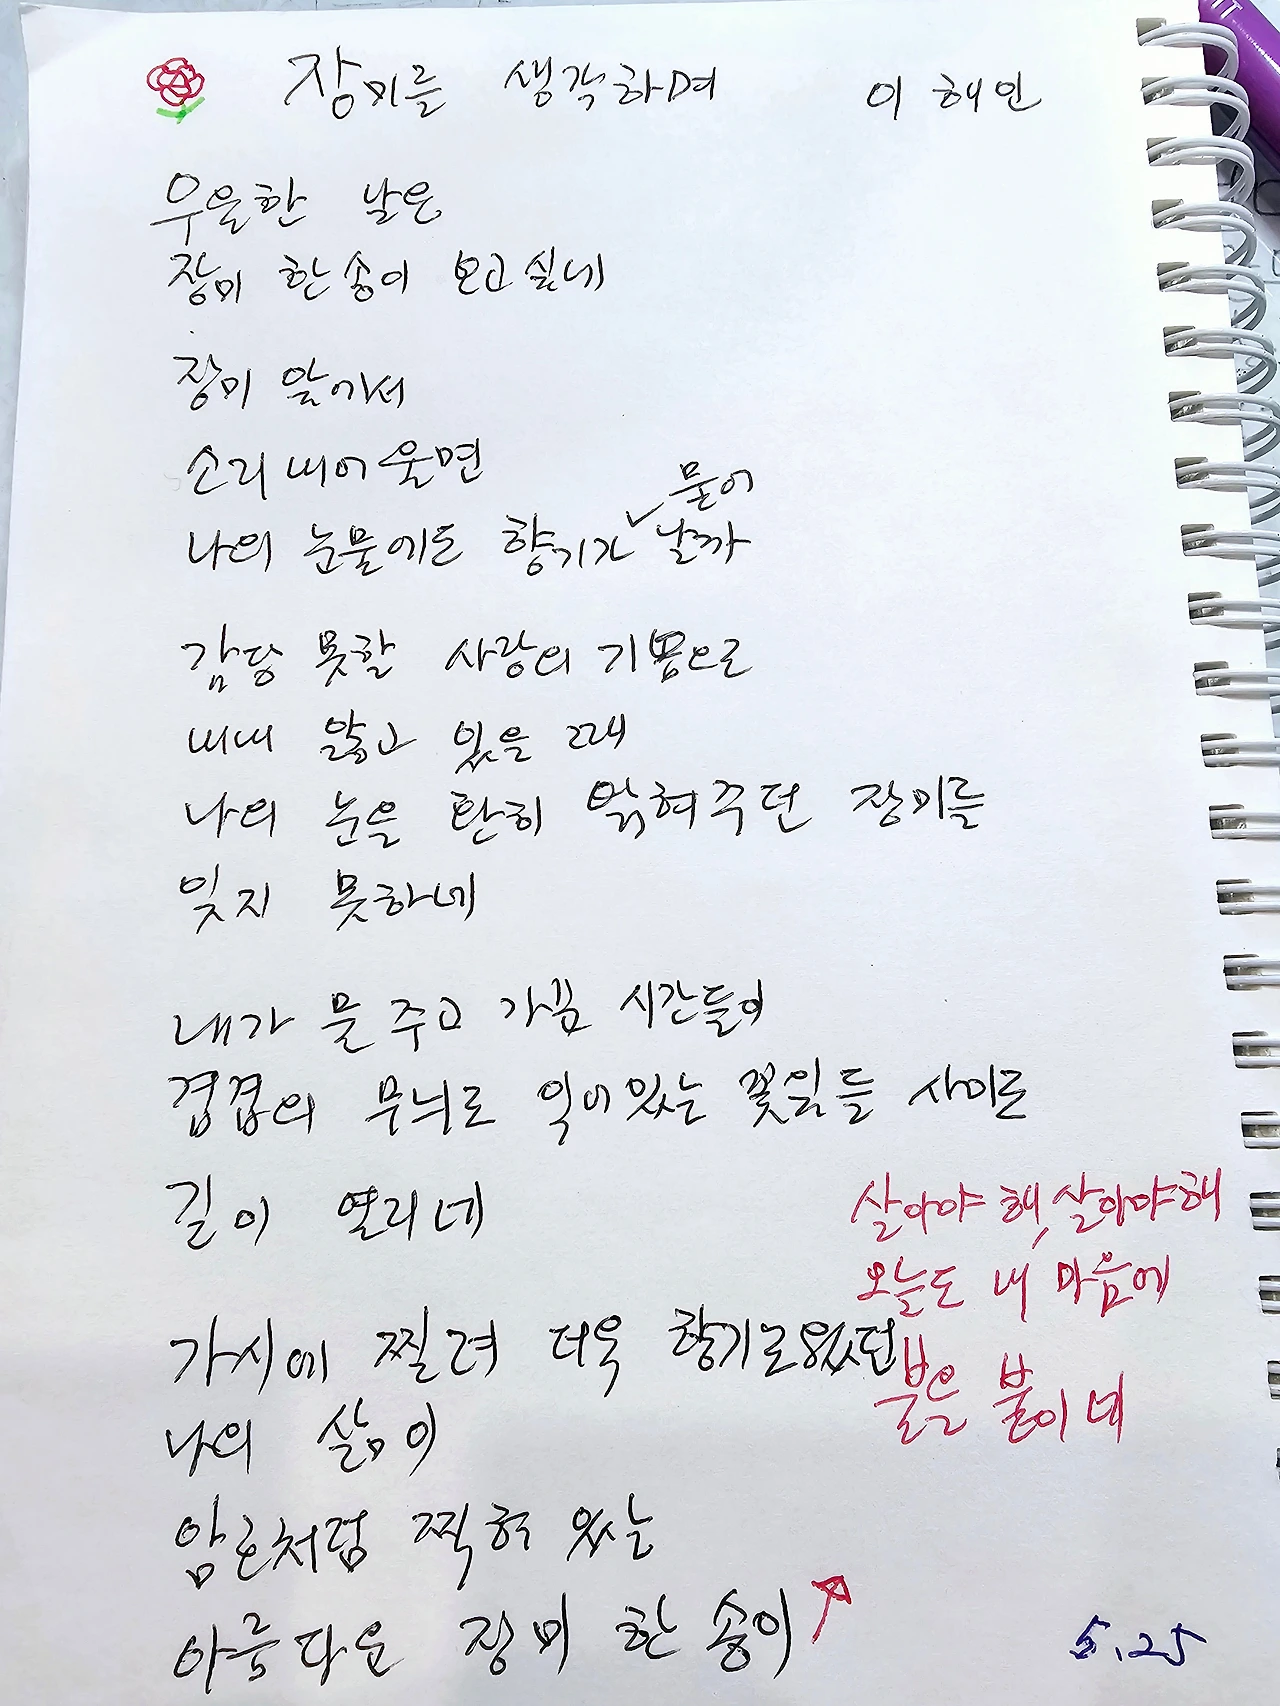 장미를 생각하며 이해인
우울한 날은
장미 한송이 보고싶네
장미 앞에서
소리내어 울면
나의 눈물에도 향기가 묻어 날까
감당 못할 사랑의 기쁨으로
내내 앓고 있을 때
나의 눈을 환히 밝혀주던 장미를
잊지 못하네
내가 물 주고 가꾼 시간들이
겹겹의 무늬로 익어있는 꽃잎들 사이로
길이 열리네
가시에 찔려 더욱 향기로웠던
나의 삶이
암호처럼 찍혀 있는
아름다운 장미 한 송이
살아야 해, 살아야해
오늘도 내 마음에
불을 붙이네
5.25